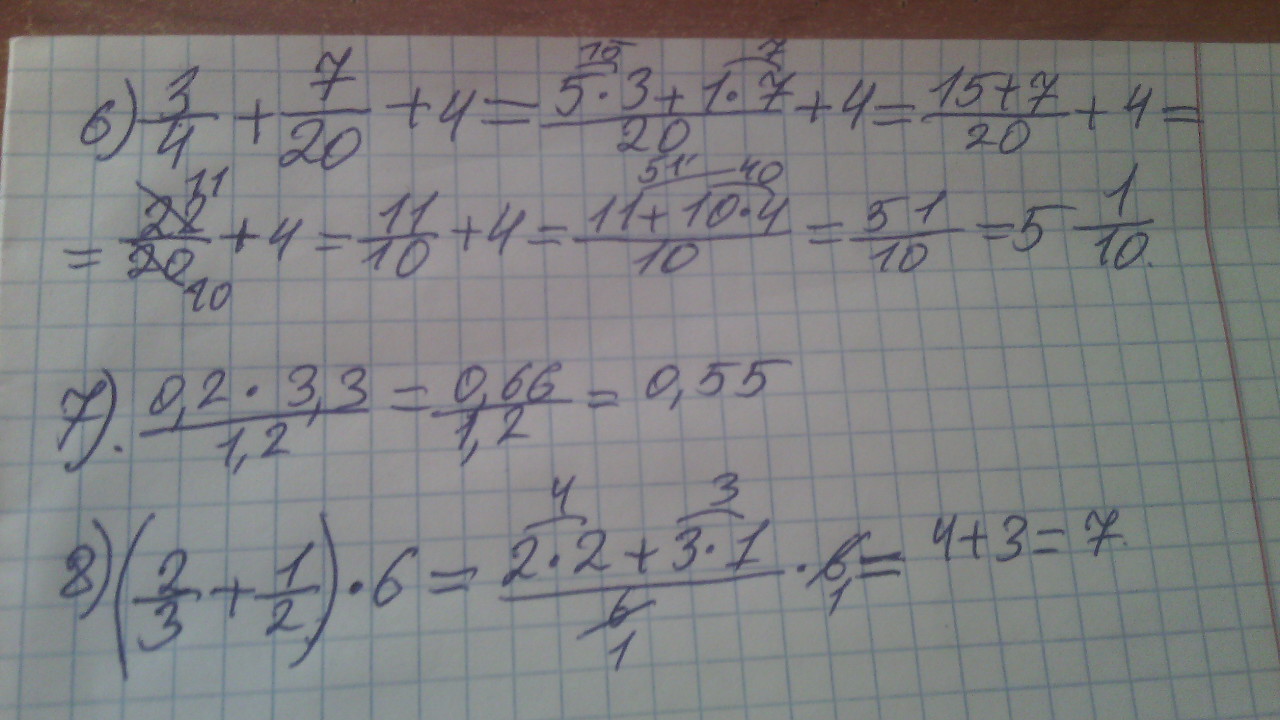 6) 3/4 + 7/20 + 4 = (5·3 + 1·7)/20 + 4 = (15+7)/20 + 4 =
= 22/20 + 4 = 11/10 + 4 = (11 + 10·4)/10 = 51/10 = 5 1/10.
7). (0,2 · 3,3)/1,2 = 0,66/1,2 = 0,55
8) (2/3 + 1/2) · 6 = (2·2 + 3·1)/6 · 6 = 4+3 = 7.